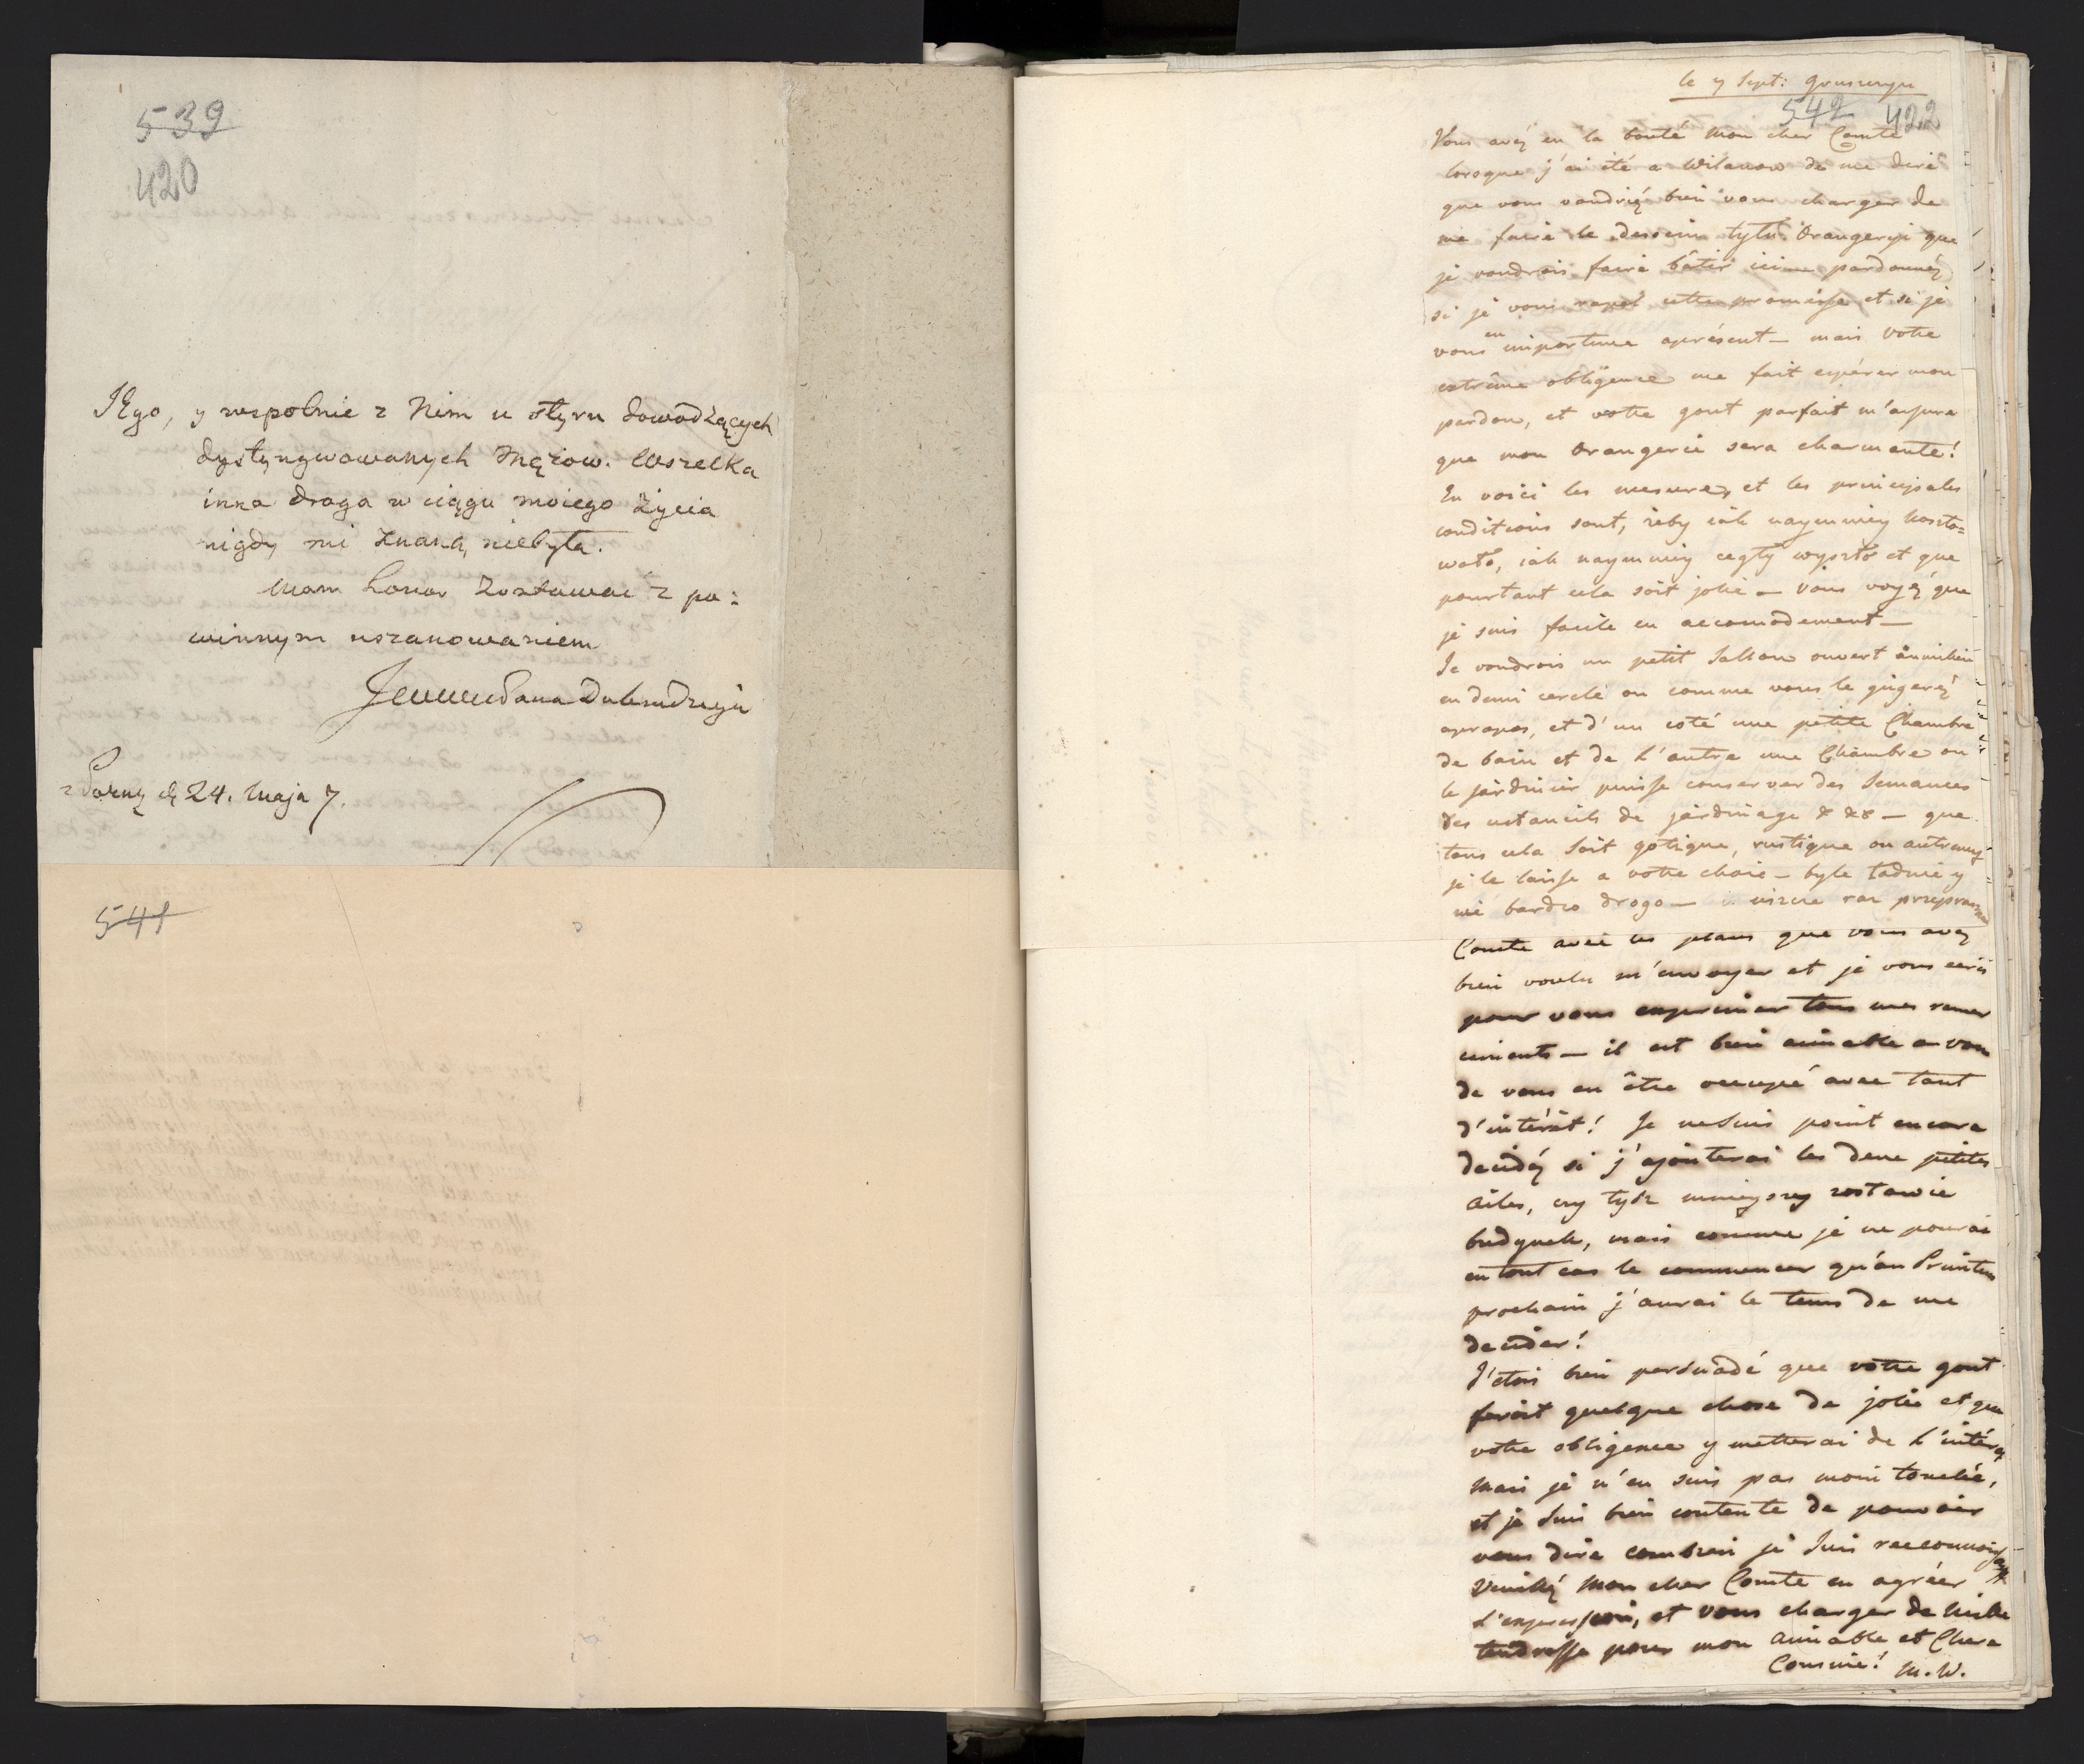 539
420
JEgo, y wespolnie z Nim u styru dowodzących
dystyngwowanych Mężow. Wszelka
inna droga w ciągu moiego życia
nigdy mi znaną niebyła.
Mam honor zostawać z po:
winnym uszanowaniem
24. Maja 7.
541
le 7 Sept: Gruszczyn
542 422
Vous avéz eu la bonté mon cher Comte
lorsque j'ai été a Wilanow de me dire
que vous voudriéz bien vous charger de
me faire le dessein tytu Orangeryi que
je voudrois faire bâtir ici — pardonnéz
si je vous rapel cette promesse et si je
vous en importune aprésent — mais votre
extrême obligence me fait espérer mon
pardon, et votre gout parfait m'assure
que mon Orangerie sera charmante!
En voici les mesures, et les principales
conditions sont, żeby iak naymniey koszto=
wało, iak naymniey cegły wyszło et que
pourtant cela soit jolie — vous voyéz que
je suis facile en accomodement —
Je voudrois un petit Sallon ouvert aumilieu
en demi cercle ou comme vous le jugeréz
apropos, et d'un coté une petite Chambre
de bain et de l'autre une Chambre ou
le jardinier puisse conserver des Semances
des ustancils de jardinage & &c — que
tous cela soit gotique, rustique ou autrement
je le laisse a votre choix — byle ładnie y
nie bardzo drogo —
Comte avec les plans que vous avéz
bien voulu m'envoyer et je vous ecris
pour vous exprimer tous mes remer
ciments — il est bien aimable a vous
de vous en être occupé avec tant
d'intérêt! Je ne suis point encore
decidéz si j'ajouterai les deux petites
ailes, czy tysz mnieyszy zostawie
budynek, mais comme je ne pourai
en tout cas le commencer qu'au Printems
prochain j'aurai le tems de me
decider!
J'étois bien persuadé que votre gout
feroit quelque chose de jolie et que
votre obligence y metterai de l'intérêt
mais je n'en suis pas moin touchée,
et je suis bien contente de pouvoir
vous dire combien je suis reconnoissante
Veuilléz mon cher Comte en agréer
l'expression, et vous charger de mille
tendresse pour mon aimable et Chere
Cousine! M.W.